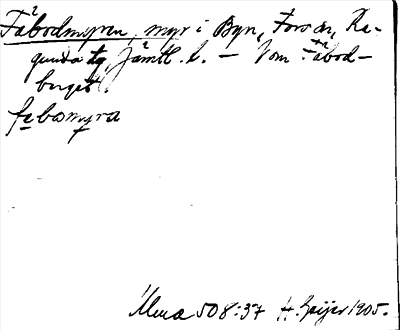 Fäbodmyren, myr i Byn, Fors sn, Ra-
gunda tg, Jämtl. l. — Vom Fäbod-
berget.
fɛbomyra
Ulma 508:37 H. Geijer 1905.